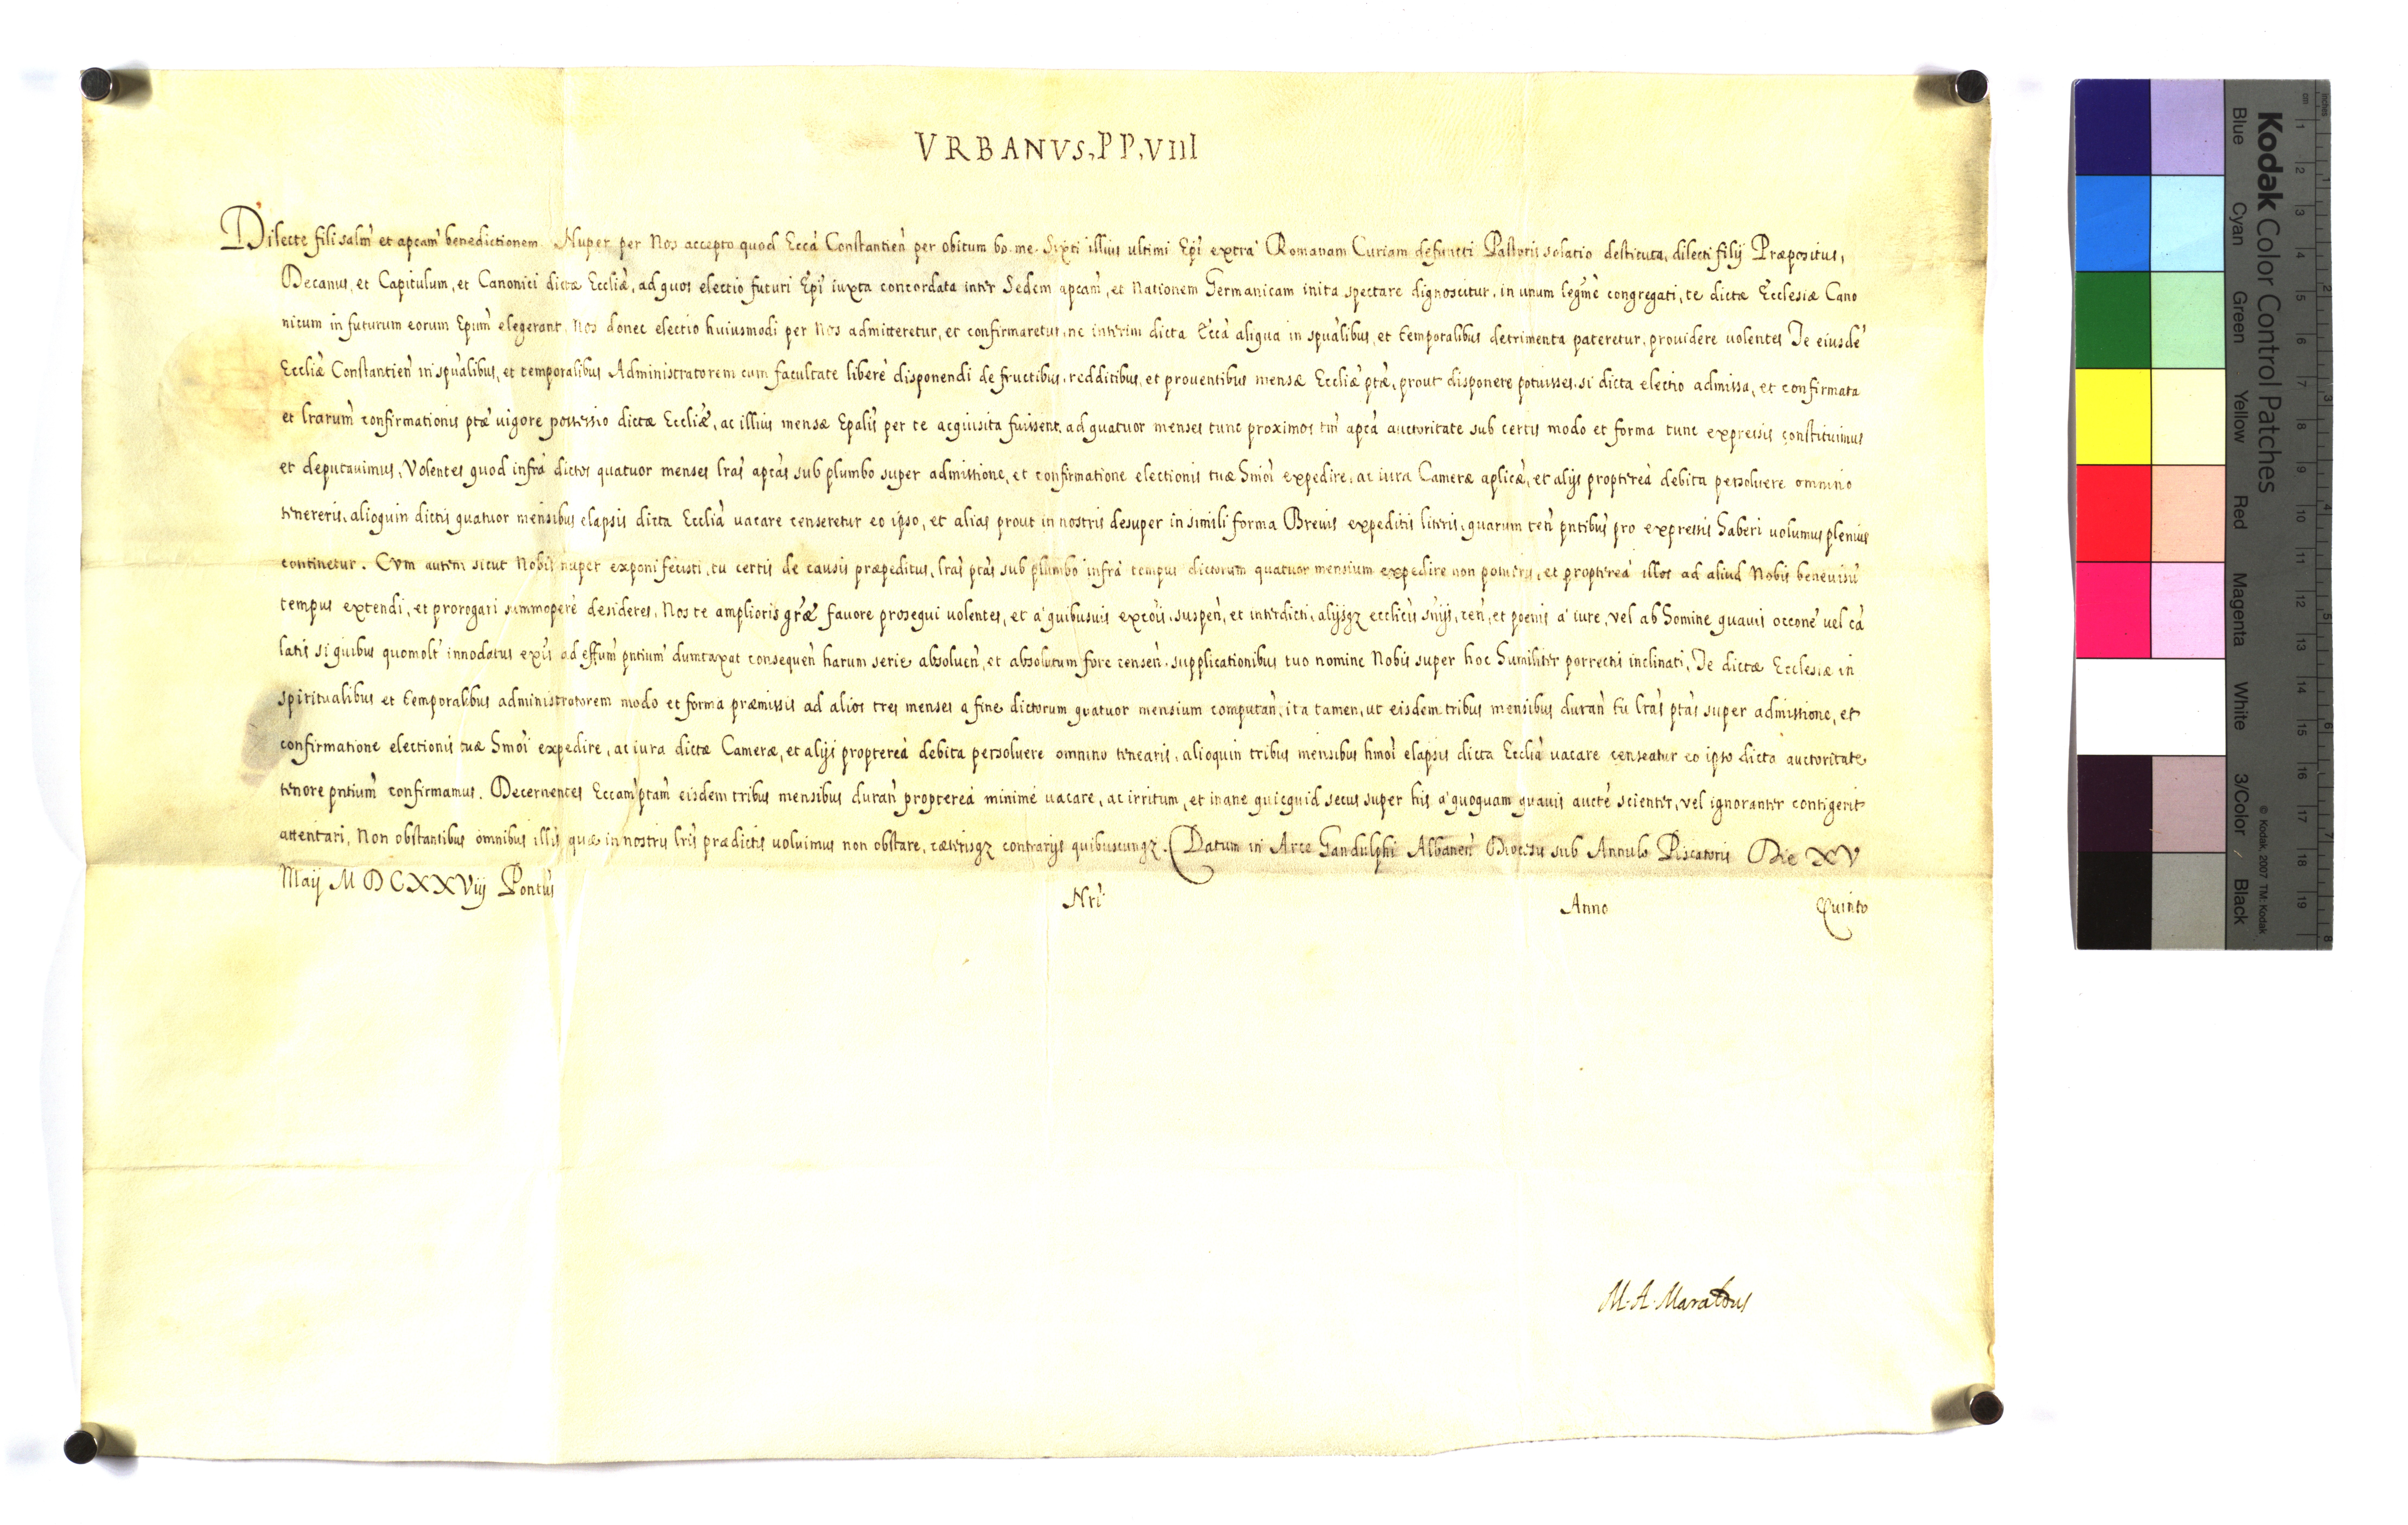 VRBANVS, PP, VIII
Dilecte fili salm̃ et apcam̃ benedictionem. Nuper per Nos accepto quod Eccã Constantien̄ per obitum bo. me. Sixti illius ultimi Epĩ extra Romanam Curiam defuncti Pastoris solatio destituta, dilecti filij Præpositus,
Decanus, et Capitulum, et Canonici dictæ Ecclĩæ, ad quos electio futuri Epĩ iuxta concordata inter Sedem apcam̃, et Nationem Germanicam inita spectare dignoscitur, in unum legmẽ congregati, te dictæ Ecclesiæ Cano
nicum in futurum eorum Epum̃ elegerant, Nos donec electio huiusmodi per Nos admitteretur, et confirmaretur, ne interim dicta Eccã aliqua in spũalibus, et temporalibus detrimenta pateretur, prouidere volentes Te eiusdẽ
Ecclĩæ Constantien̄ in spũalibus, et temporalibus Administratorem cum facultate liberè disponendi de fructibus, redditibus, et prouentibus mensæ Ecclĩæ ptæ̃, prout disponere potuisses, si dicta electio admissa, et confirmata
et lrarum̃ confirmationis ptæ̃ vigore possessio dictæ Ecclĩæ, ac illius mensæ Epalĩs per te acquisita fuissent, ad quatuor menses tunc proximos tm̃ apcã auctoritate sub certis modo et forma tunc expressis constituimus
et deputauimus, Volentes quod infrà dictos quatuor menses lrãs apcãs sub plumbo super admissione, et confirmatione electionis tuæ hmõi expedire, ac iura Cameræ aplicæ̃, et alijs proptereà debita persoluere omnino
tenereris, alioquin dictis quatuor mensibus elapsis dicta Ecclĩa uacare censeretur eo ipso, et alias prout in nostris desuper in simili forma Breuis expeditis literis, quarum ten̄ pntĩbus pro expressis haberi volumus plenius
continetur. Cvm autem sicut Nobis nuper exponi fecisti, tu certis de causis præpeditus, lrãs ptãs sub plumbo infrà tempus dictorum quatuor mensium expedire non potueris, et proptereà illos ad aliud Nobis beneuisũ
tempus extendi, et prorogari summoperè desideres, Nos te amplioris grãæ fauore prosequi volentes, et à quibusuis excõis, suspen̄, et interdicti, alijsqz ecclicĩs sñijs, cen̄, et poenis à iure, vel ab homine quauis occonẽ vel cã
latis si quibus quomolt̃ innodatus exis̃ ad effum̃ pntium̃ dumtaxat consequen̄ harum serie absoluen̄, et absolutum fore censen̄. supplicationibus tuo nomine Nobis super hoc humiliter porrectis inclinati, Te dictæ Ecclesiæ in
spiritualibus et temporalibus administratorem modo et forma præmissis ad alios tres menses à fine dictorum quatuor mensium computan̄, ita tamen, ut eisdem tribus mensibus duran̄ tu lrãs ptãs super admissione, et
confirmatione electionis tuæ hmõi expedire, ac iura dictæ Cameræ, et alijs proptereà debita persoluere omnino tenearis, alioquin tribus mensibus hmõi elapsis dicta Ecclĩa uacare censeatur eo ipso dicta auctoritate
tenore pntium̃ confirmamus. Decernentes Eccam̃ ptam̃ eisdem tribus mensibus duran̄ proptereà minimè uacare, ac irritum, et inane quicquid secus super his à quoquam quauis auctẽ scienter, vel ignoranter contigerit
attentari, Non obstantibus omnibus illis quæ in nostris lrĩs prædictis uoluimus non obstare, cæterisqz contrarijs quibuscunqz. (Datum in Arce Gandulphi Albanen̄ Diocesis sub Annulo Piscatoris Die XV
Maij MDCXXVIIj Pontũs Nrĩ Anno Quinto
M. A. Maraldus